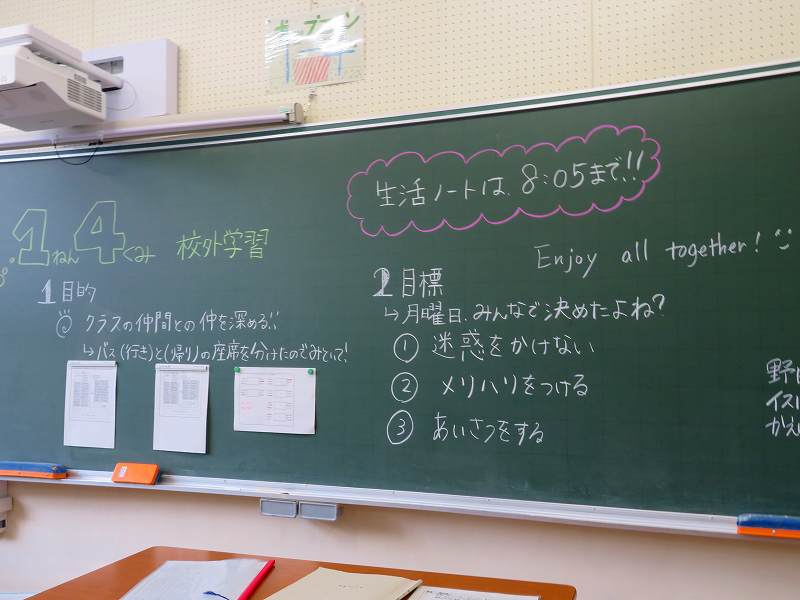 生活ノートは、8:05まで!!
1ねん4くみ 校外学習
Enjoy all together!
1 目的
クラスの仲間との仲を深める!!
↳バス(行き)と(帰り)の座席を分けたのでみといて!
2 目標
↳月曜日、みんなで決めたよね?
① 迷惑をかけない
② メリハリをつける
③ あいさつをする
イスは
かえ